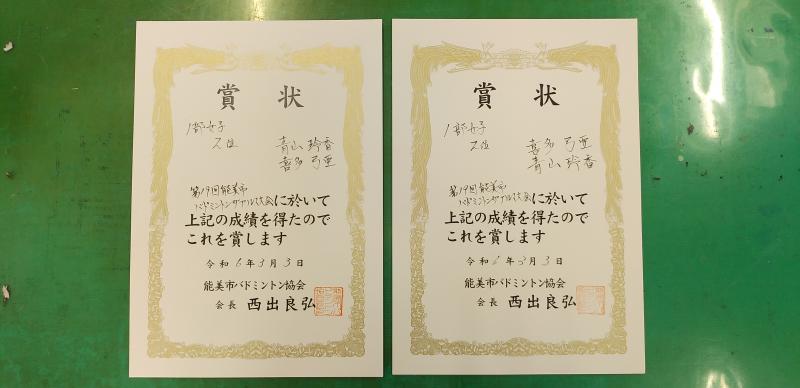 賞状
1部女子
2位
青山玲香
喜多弓亜
第19回能美市
バドミントンダブルス大会に於いて
上記の成績を得たので
これを賞します
令和6年3月3日
能美市バドミントン協会
会長 西出良弘
賞状
1部女子
2位
喜多弓亜
青山玲香
第19回能美市
バドミントンダブルス大会に於いて
上記の成績を得たので
これを賞します
令和6年3月3日
能美市バドミントン協会
会長 西出良弘